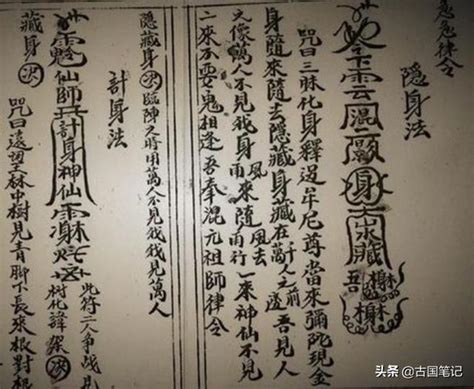 急急律令
隱身法
身
藏
吾
咒曰三昧化身釋迦牟尼尊當來彌陀現金
身隨來隨去隱藏身藏在千萬人之前遂吾見人
萬人不見我身風來隨風去雨來隨雨行一來神仙不見
二來不要鬼相逢吾奉混元祖師律令
隱藏身 決 臨陣之時用萬人不見我我見萬人
計身法
仙師
計身神仙
此符二人爭战見
樹化諱
決
藏身 決
咒曰遠望林中樹見青脚下長來根對根
头条 @古国笔记